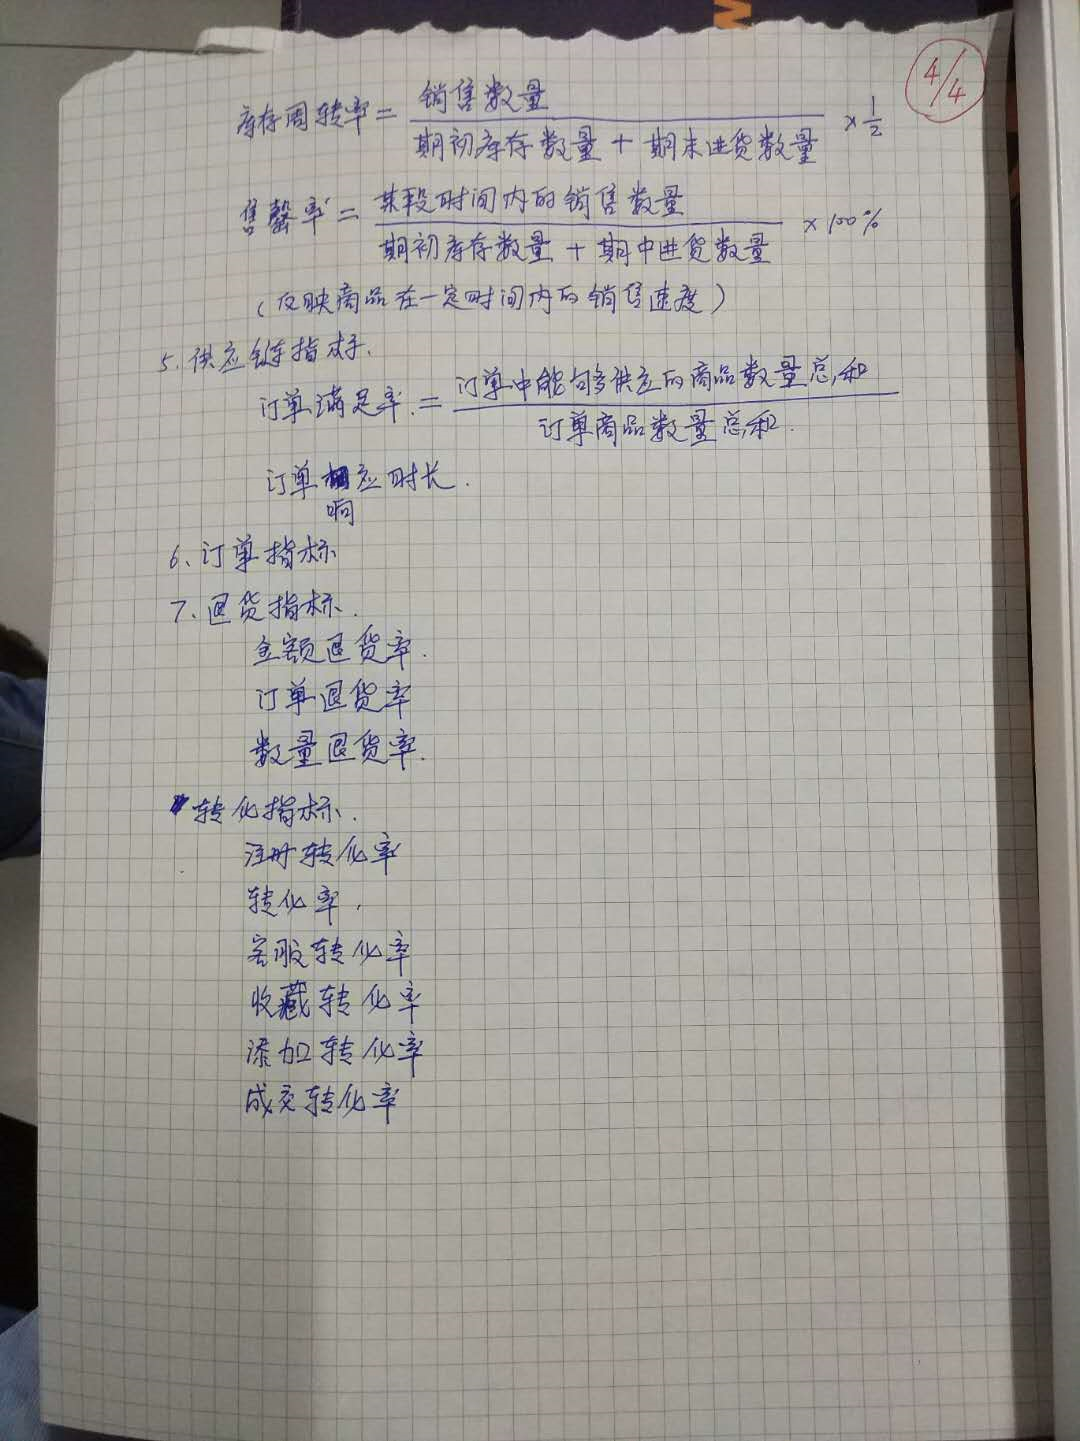 4/4
库存周转率 = 销售数量 / 期初库存数量 + 期末进货数量 × 1/2
售罄率 = 某段时间内的销售数量 / 期初库存数量 + 期中进货数量 × 100%
(反映商品在一定时间内的销售速度)
5、供应链指标.
订单满足率 = 订单中能够供应的商品数量总和 / 订单商品数量总和.
订单响应时长.
6、订单指标
7、退货指标.
金额退货率.
订单退货率
数量退货率.
转化指标.
注册转化率
转化率.
客服转化率
收藏转化率
添加转化率
成交转化率